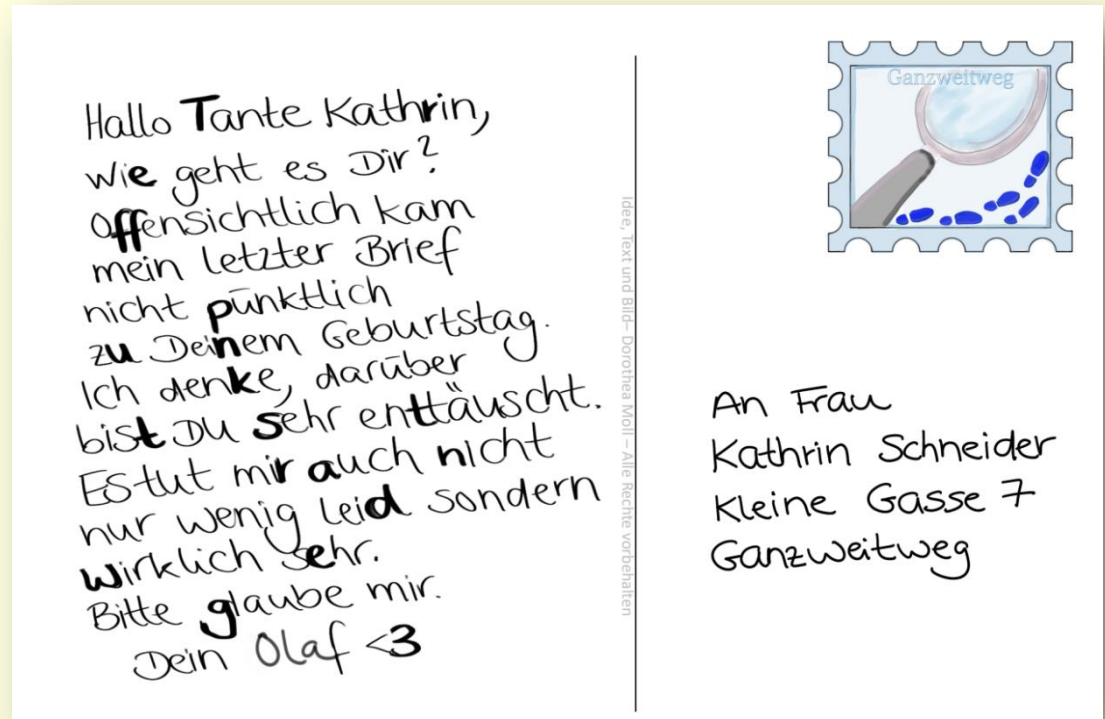 Hallo Tante Kathrin,
wie geht es Dir?
Offensichtlich kam
mein letzter Brief
nicht pünktlich
zu Deinem Geburtstag.
Ich denke, darüber
bist Du sehr enttäuscht.
Es tut mir auch nicht
nur wenig leid sondern
wirklich sehr.
Bitte glaube mir.
Dein Olaf <3
Idee, Text und Bild– Dorothea Moll – Alle Rechte vorbehalten
Ganzweitweg
An Frau
Kathrin Schneider
Kleine Gasse 7
Ganzweitweg